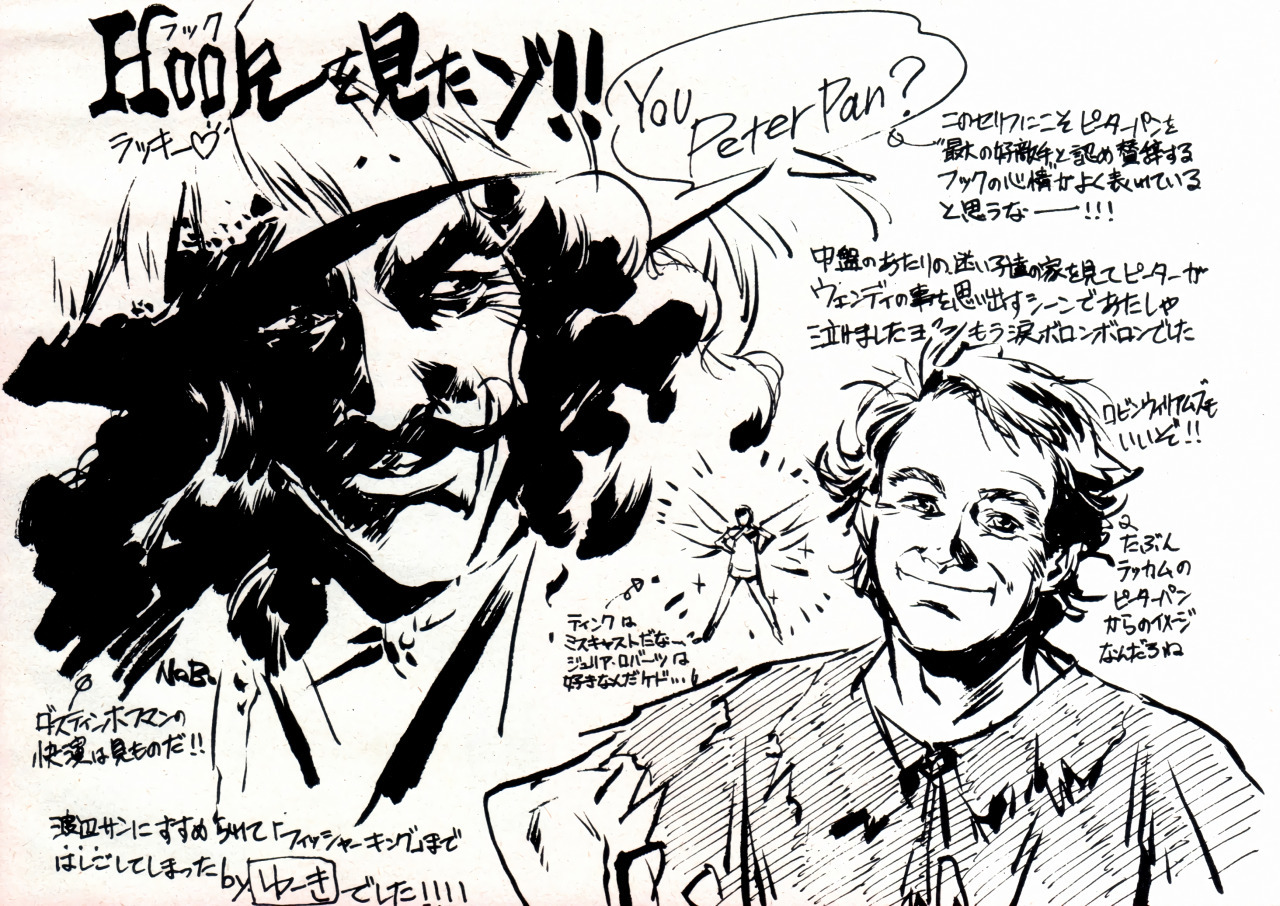 フック
Hookを見たゾ!!
ラッキー♡
You
Peter Pan?
このセリフにこそピーターパンを
"最大の好敵手"と認め賛辞する
フックの心情がよく表れている
と思うなー!!!
中盤のあたりの、迷い子達の家を見てピーターが
ウェンディの事を思い出すシーンであたしゃ
泣けましたヨ もう涙ボロンボロンでした
ロビンウィリアムズも
いいぞ!!
たぶん
ラッカムの
ピーターパン
からのイメージ
なんだろね
ティンクは
ミスキャストだな
ジュリア・ロバーツは
好きなんだケド…
NOB.
ダスティンホフマンの
快演は見ものだ!!
渡辺サンにすすめられて「フィッシャーキング」まで
はしごしてしまった by ゆーき でした!!!!